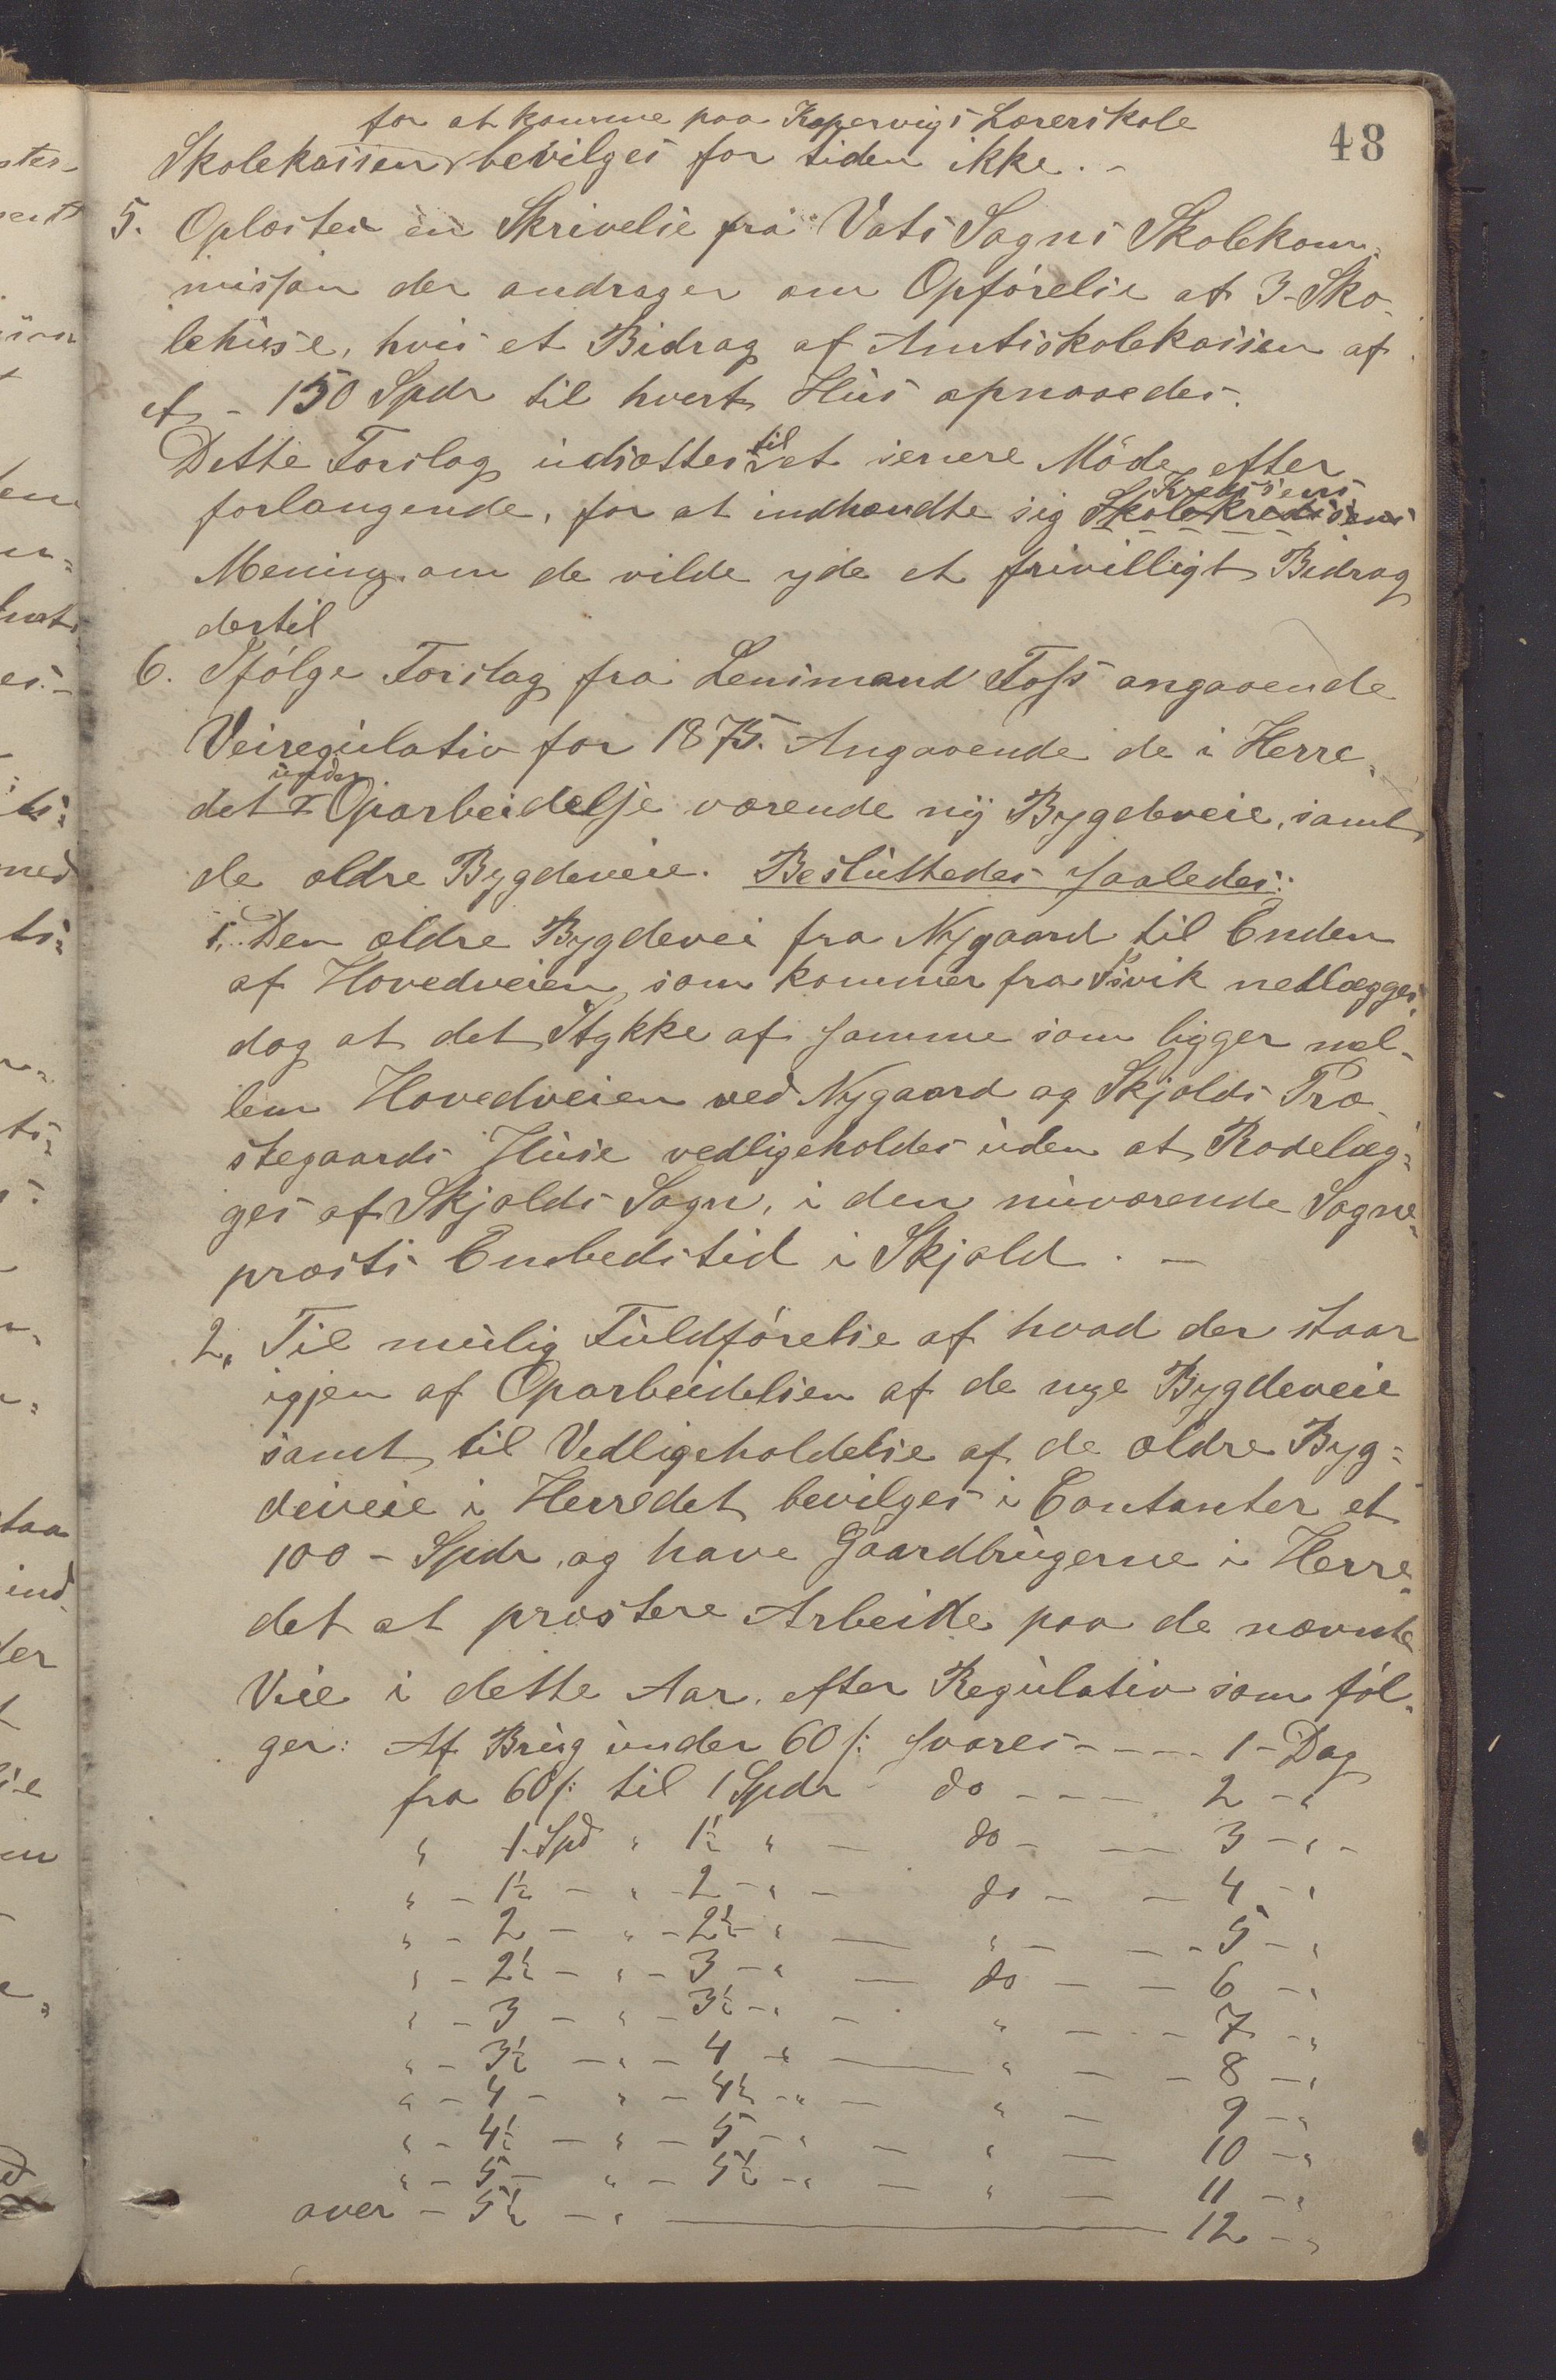 48
for at komme paa Kopervigs Lærerskole
Skolekassen bevilges for tiden ikke. -
5. Oplæstes en Skrivelse fra Vats Sogns Skolekom-
missjon der andrager om Opførelse af 3 - Sko-
lehuse, hvis et Bidrag af Amtsskolekassen af
et - 150 Spdr til hvert Hus opnaaedes.
Dette Forslag udsættes til et senere Möde, efter
Kredsens
forlangende, for at indhændte sig Skolekredsens
Mening om de vilde yde et frivilligt Bidrag
dertil
6. Ifølge Forslag fra Lensmand Foss angaaende
Veiregulativ for 1875. Angaaende de i Herre-
det under Oparbeidelse værende ny Bygdeveie, samt
de ældre Bygdeveie. Besluttedes saaledes:
1. Den ældre Bygdevei fra Nygaard til Enden
af Hovedveien som kommer fra Isvik nedlægges,
dog at det Stykke af samme som ligger mel-
lem Hovedveien ved Nygaard og Skjolds Præ-
stegaards Huse vedligeholdes uden at Rodelæg-
ges af Skjolds Sogn, i den nuværende Sogne-
præsts Embedstid i Skjold. -
2. Til mulig Fuldførelse af hvad der staar
igjen af Oparbeidelsen af de nye Bygdeveie
samt til Vedligeholdelse af de ældre Byg-
deveie i Herredet bevilges i Contanter et
100 - Spdr, og have Gaardbrugerne i Herre-
det at præstere Arbeide paa de nævnte
Veie i dette Aar, efter Regulativ som føl-
ger: Af Brug under 60 /: svares - - - - 1 - Dag
fra 60 /: til 1 Spdr do - - - 2 - "
" 1 Spd " 1½ " - do - - 3 - " -
" - 1½ - " 2 - " - do - - 4 - "
" - 2 - " - 2½ - " - " - - - 5 - "
" - 2½ - " - 3 - " - do - - 6 - "
" - 3 - " - 3½ - " - " - - - 7 - "
" - 3½ - " - 4 - " - " - - 8 - "
" - 4 - " - 4½ - " - " - 9 - "
" - 4½ - " - 5 - " - " - 10 - "
" - 5 - " - 5½ - " - " - 11 - "
over - 5½ - " - 12 - "